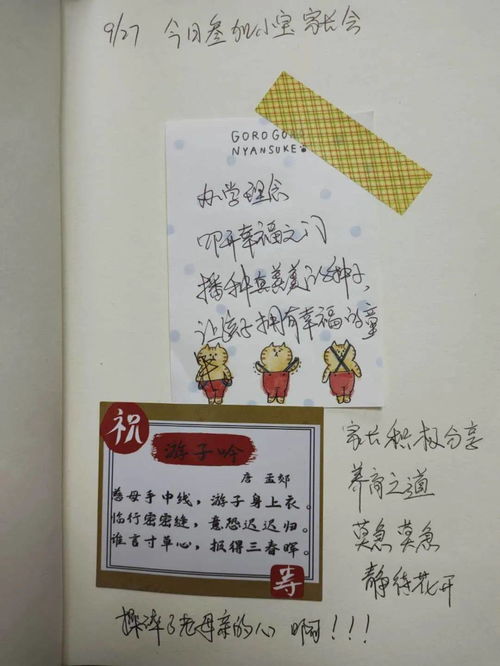 9/27 今日参加小宝家长会
GOROGORO
NYANSUKE
办学理念
叩开幸福之门
播种真善美的种子,
让孩子拥有幸福的童
祝
游子吟
唐 孟郊
慈母手中线，游子身上衣。
临行密密缝，意恐迟迟归。
谁言寸草心，报得三春晖。
寿
家长积极分享
养育之道
莫急莫急
静待花开
操碎了老母亲的心 啊!!!